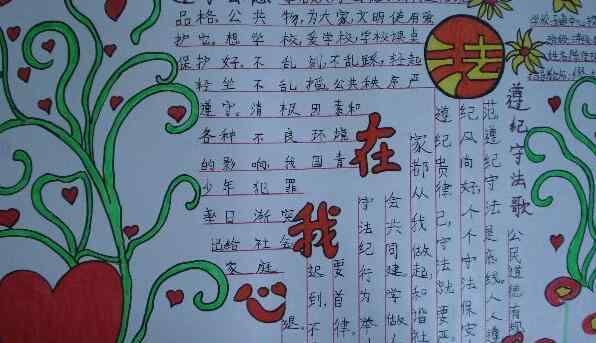 品格，公共物，为大家，文明使用爱
护它，想学校，爱学校，学校操桌
保护好，不乱刻，不乱踩，轻起
轻坐不乱摇，公共秩序严
遵守，消极因素和
各种不良环境
的影响，我国青
少年犯罪
率日渐突
迅给社会
家庭
法
在
我
心
遵纪守法歌
公民道德有规
范遵纪守法是底线，人人遵
纪风尚好，个个守法保安
遵纪贵律己，守法就要严
家都从我做起，和谐社
会共同建学做人
守法纪行为举
要，首律
迟到，不
退，